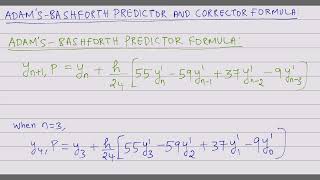 ADAM'S-BASHFORTH PREDICTOR AND CORRECTOR FORMULA:
ADAM'S-BASHFORTH PREDICTOR FORMULA:
y_{n+1},P = y_n + h/24 [55y'_n - 59y'_{n-1} + 37y'_{n-2} - 9y'_{n-3}]
when n=3,
y_4,P = y_3 + h/24 [55y'_3 - 59y'_2 + 37y'_1 - 9y'_0]